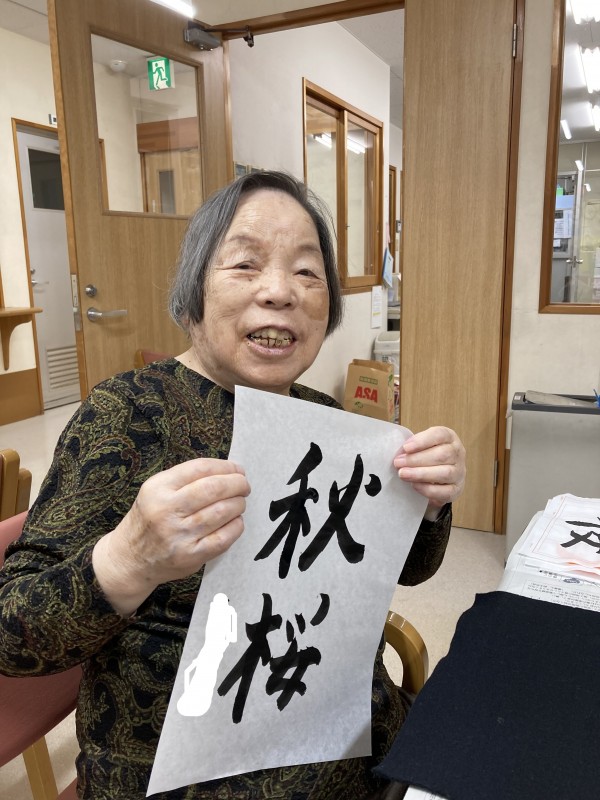 秋
桜
ASA